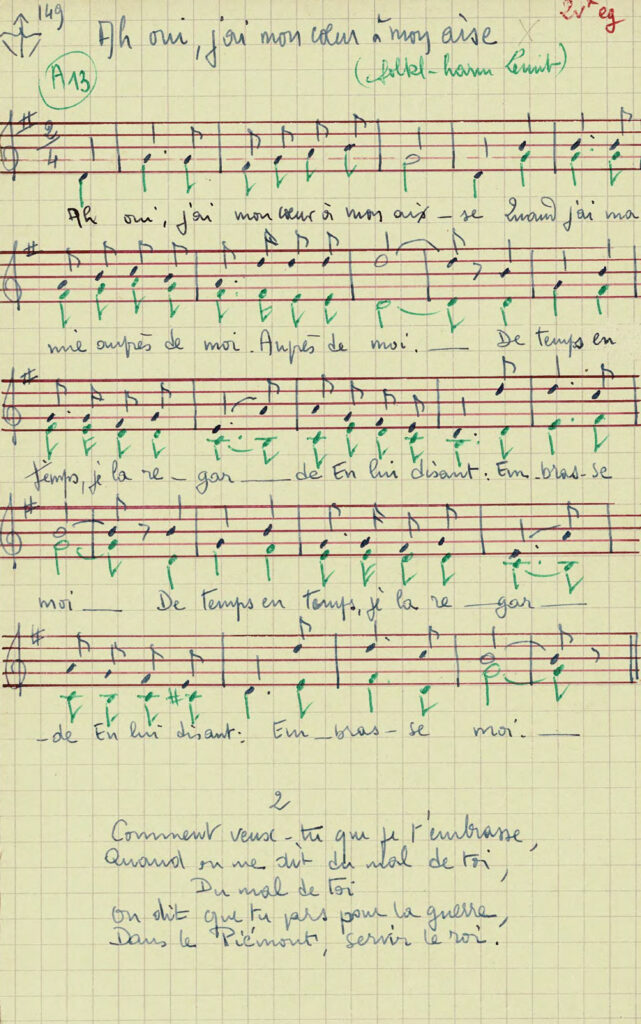 149
2v* eg
Ah oui, j'ai mon cœur à mon aise
A13
(folkl-harm
2/4
Ah oui, j'ai mon cœur à mon aix-se Quand j'ai ma
mie auprès de moi. Auprès de moi. — De temps en
temps, je la re-gar — de En lui disant: Em-bras-se
moi — De temps en temps, je la re — gar —
-de En lui disant: Em-bras-se moi. —
2
Comment veux-tu que je t'embrasse,
Quand on me dit du mal de toi,
Du mal de toi
On dit que tu pars pour la guerre,
Dans le Piémont, servir le roi.